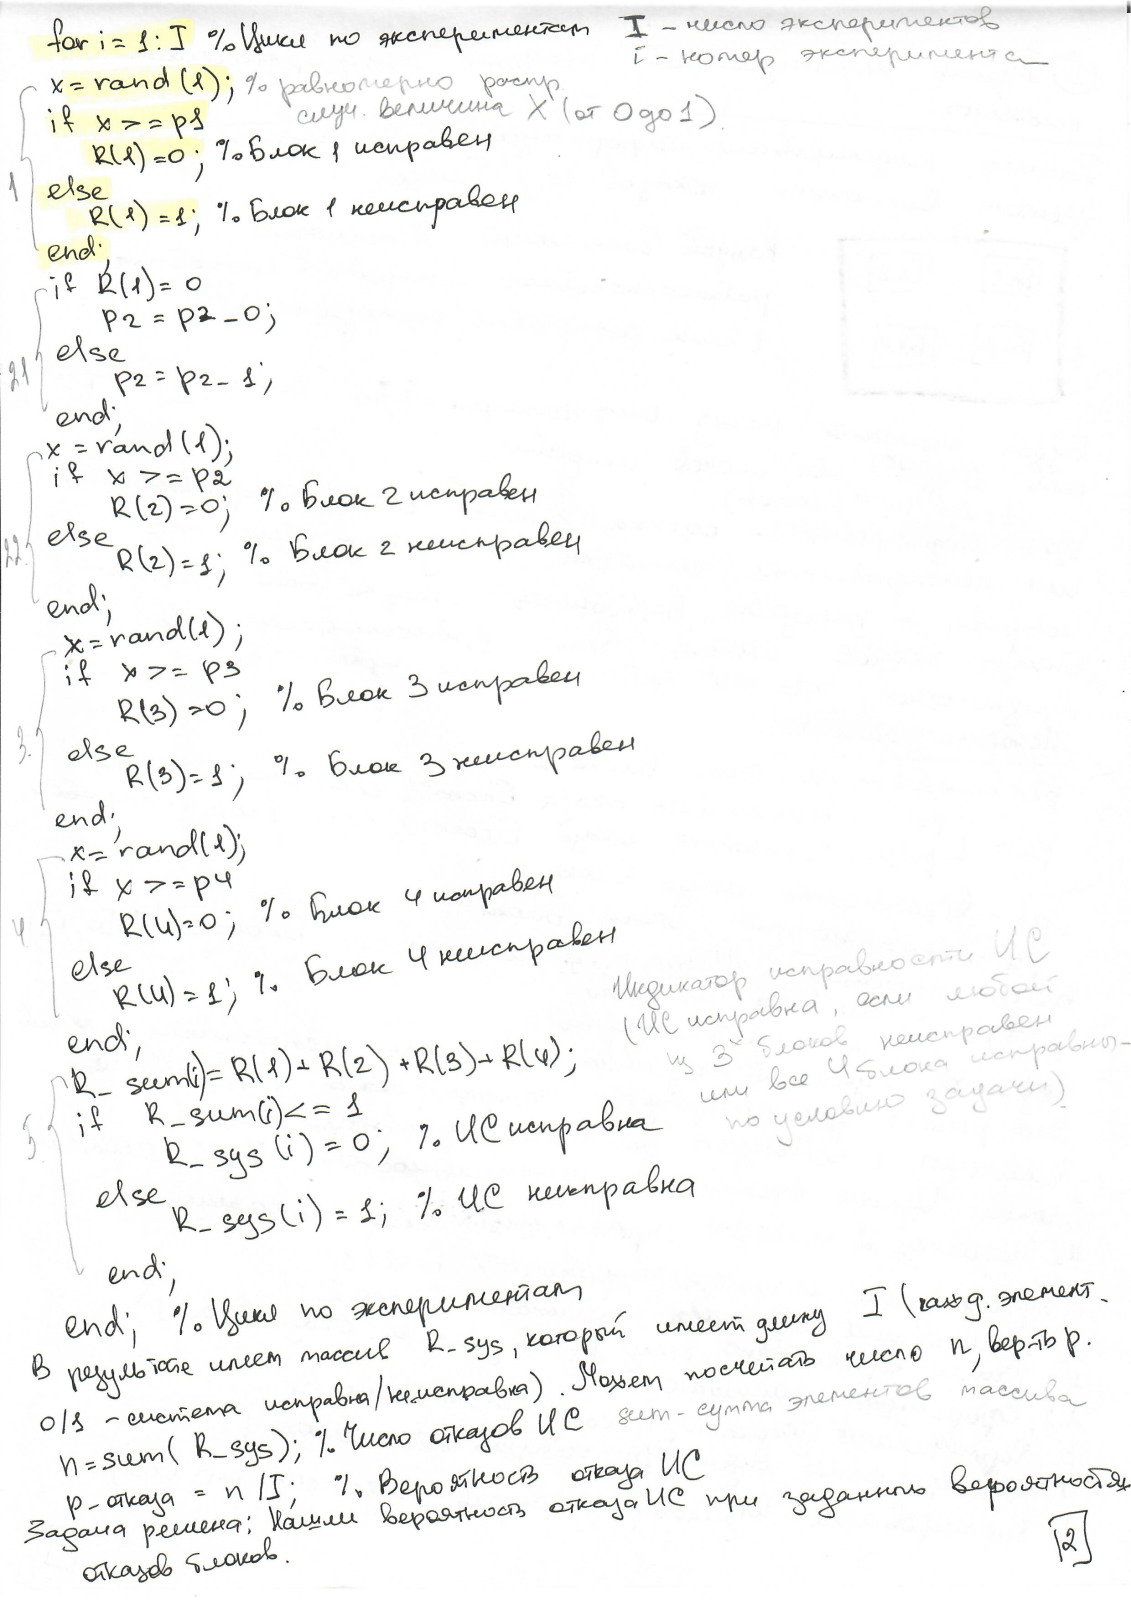 for i = 1 : I % Цикл по экспериментам I - число экспериментов
i - номер эксперимента
x = rand(1); % равномерно распр.
случ. величина X (от 0 до 1)
if x >= p1
R(1) = 0; % Блок 1 исправен
1
else
R(1) = 1; % Блок 1 неисправен
end;
if R(1) = 0
p2 = p2_0;
21
else
p2 = p2_1;
end;
x = rand(1);
if x >= p2
R(2) = 0; % Блок 2 исправен
22
else
R(2) = 1; % Блок 2 неисправен
end;
x = rand(1);
if x >= p3
R(3) = 0; % Блок 3 исправен
3.
else
R(3) = 1; % Блок 3 неисправен
end;
x = rand(1);
if x >= p4
R(4) = 0; % Блок 4 исправен
4
else
R(4) = 1; % Блок 4 неисправен
end;
Индикатор исправности ИС
(ИС исправна, если любой
из 3х блоков неисправен
или все 4 блока исправны -
по условию задачи)
R_sum(i) = R(1) + R(2) + R(3) + R(4);
if R_sum(i) <= 1
R_sys(i) = 0; % ИС исправна
5.
else
R_sys(i) = 1; % ИС неисправна
end;
end; % Цикл по экспериментам
В результате имеем массив R_sys, который имеет длину I (кажд. элемент -
0/1 - система исправна/неисправна). Можем посчитать число n, вер-ть p.
n = sum(R_sys); % Число отказов ИС sum - сумма элементов массива
p_отказа = n/I; % Вероятность отказа ИС
Задача решена: Нашли вероятность отказа ИС при заданных вероятностях
отказов блоков.
2